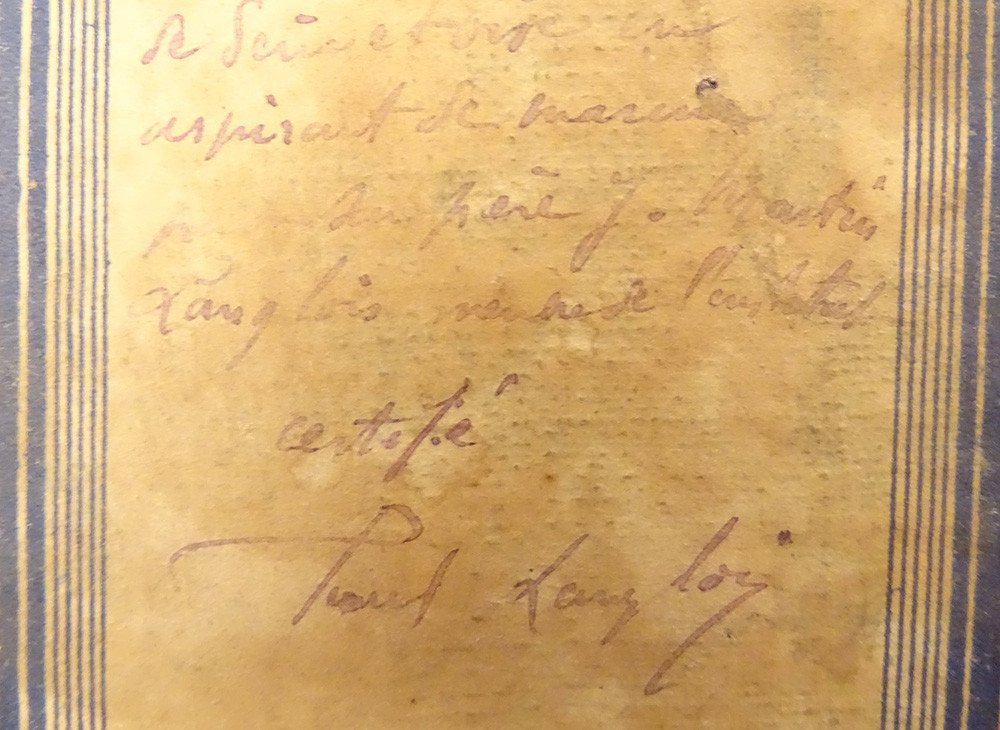 de Seine et oise en
aspirant de marine
du père J. Martin
Langlois
certifié
Paul Langlois